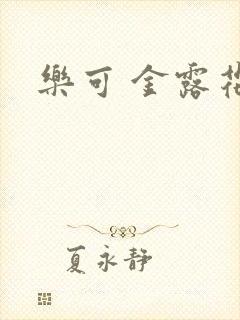 樂可 金露花
夏永静